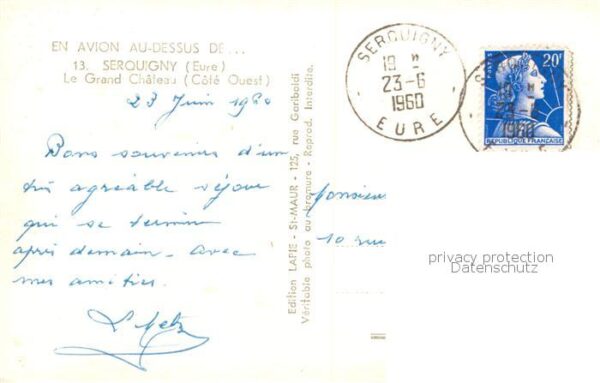 EN AVION AU-DESSUS DE...
13. SERQUIGNY (Eure)
Le Grand Château (Côté Ouest)
23 Juin 1960
Bons souvenirs d'un
très agréable séjour
qui se termine
après demain. Avec
mes amitiés.
Edition LAPIE - St-MAUR - 125, rue Garibaldi
Véritable photo au bromure - Reprod. Interdite.
SERQUIGNY
19
23-6
1960
EURE
20F
POSTES
REPUBLIQUE FRANÇAISE
1960
Monsieur
10 rue
privacy protection
Datenschutz